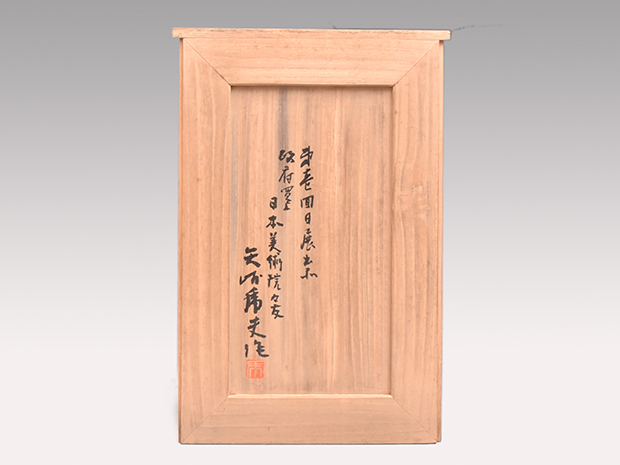 第壱回日展出品
政府買上
日本美術院々友
矢崎虎夫作